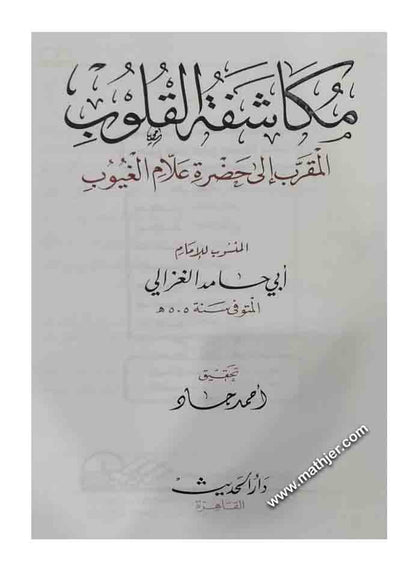 مُكَاشَفَةُ القُلُوبِ
المُقَرَّبُ إِلَى حَضْرَةِ عَلَّامِ الغُيُوبِ
المنسوب للإمام
أبي حامد الغزالي
المتوفى سنة ٥٠٥ هـ
تحقيق
أحمد جاد
دار الحديث
القاهرة
www.mathjer.com